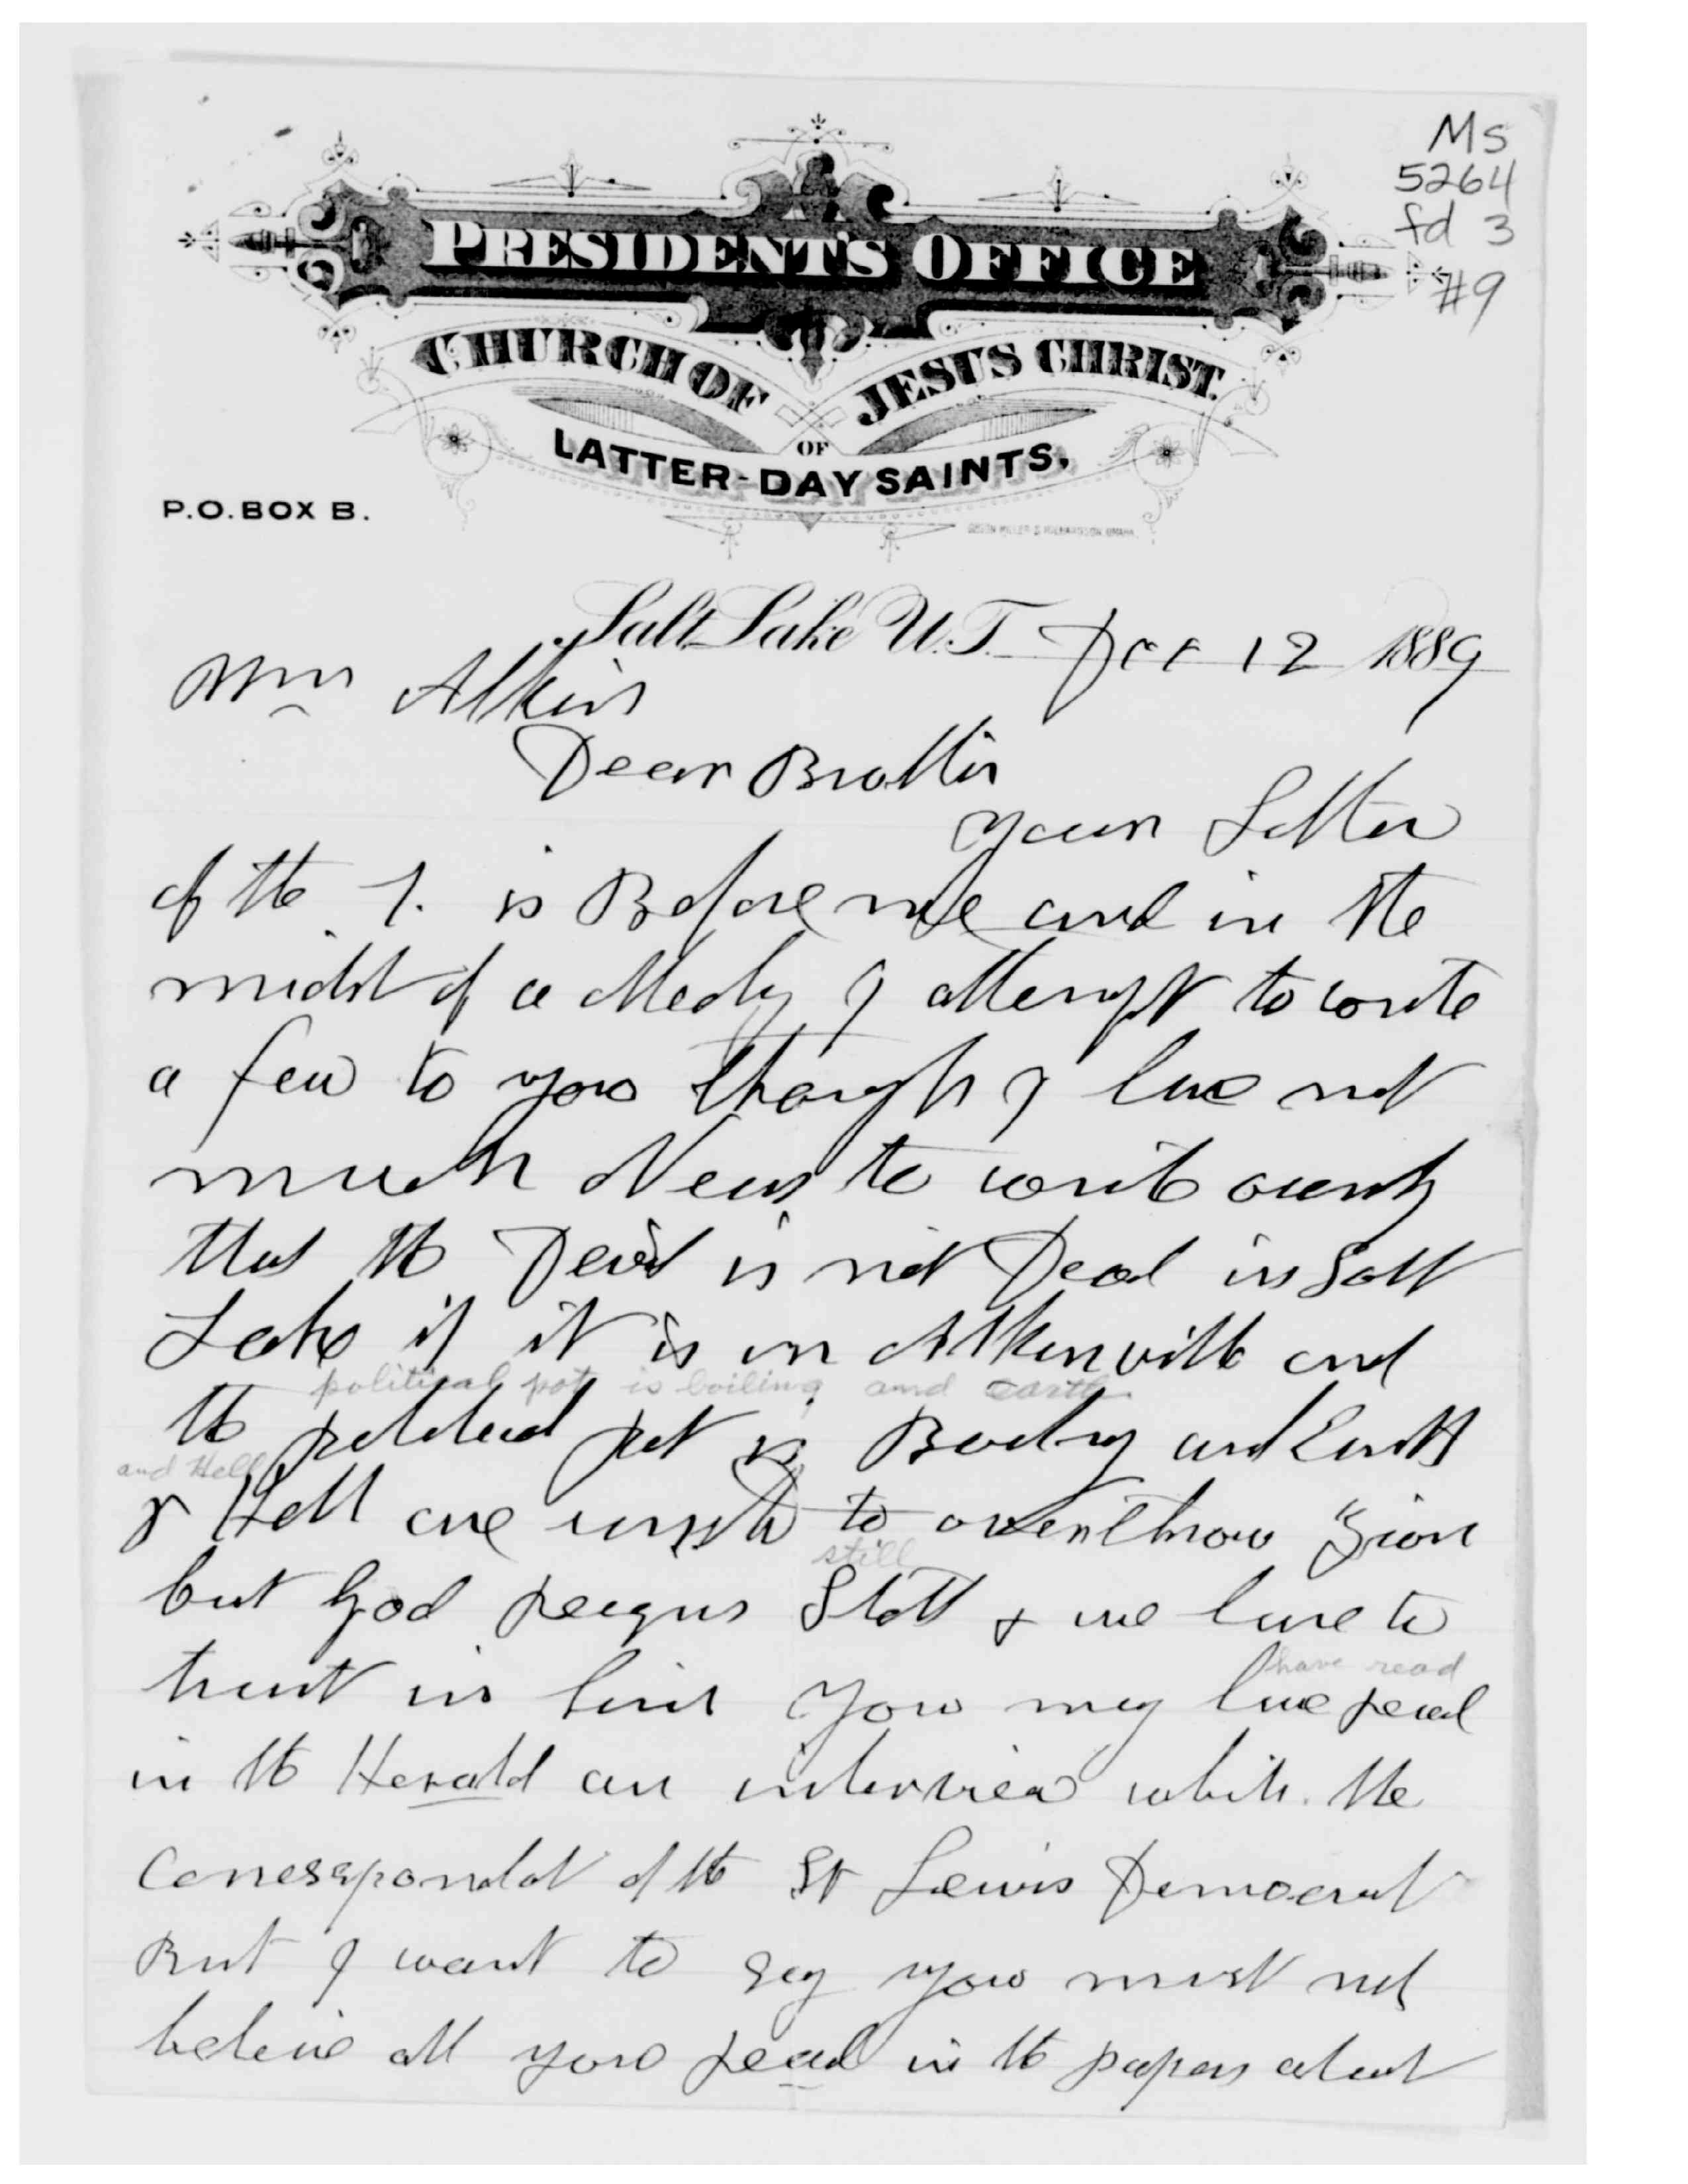 Ms
5264
fd 3
#9
PRESIDENT'S OFFICE
CHURCH OF JESUS CHRIST.
OF
LATTER-DAY SAINTS,
P.O. BOX B.
Salt Lake U.T. Dec 12 1889
Wm Atkin
Dear Brother
your Letter
of the 7. is Before me and in the
midst of a Medly I attempt to write
a few to you though I have not
much News to write ownly
that the Devil is not Dead in Salt
Lake if it is in Atkinville and
political pot is boiling and earth
the political pot is Boiling and Earth
and Hell
& Hell are united to overthrow Zion
still
but God reigns Still & we have to
trust in him You may have read
have read
in the Herald an interview with the
Correspondat of the St Lewis Democrat
But I want to say you must not
beleive all you read in the papers about